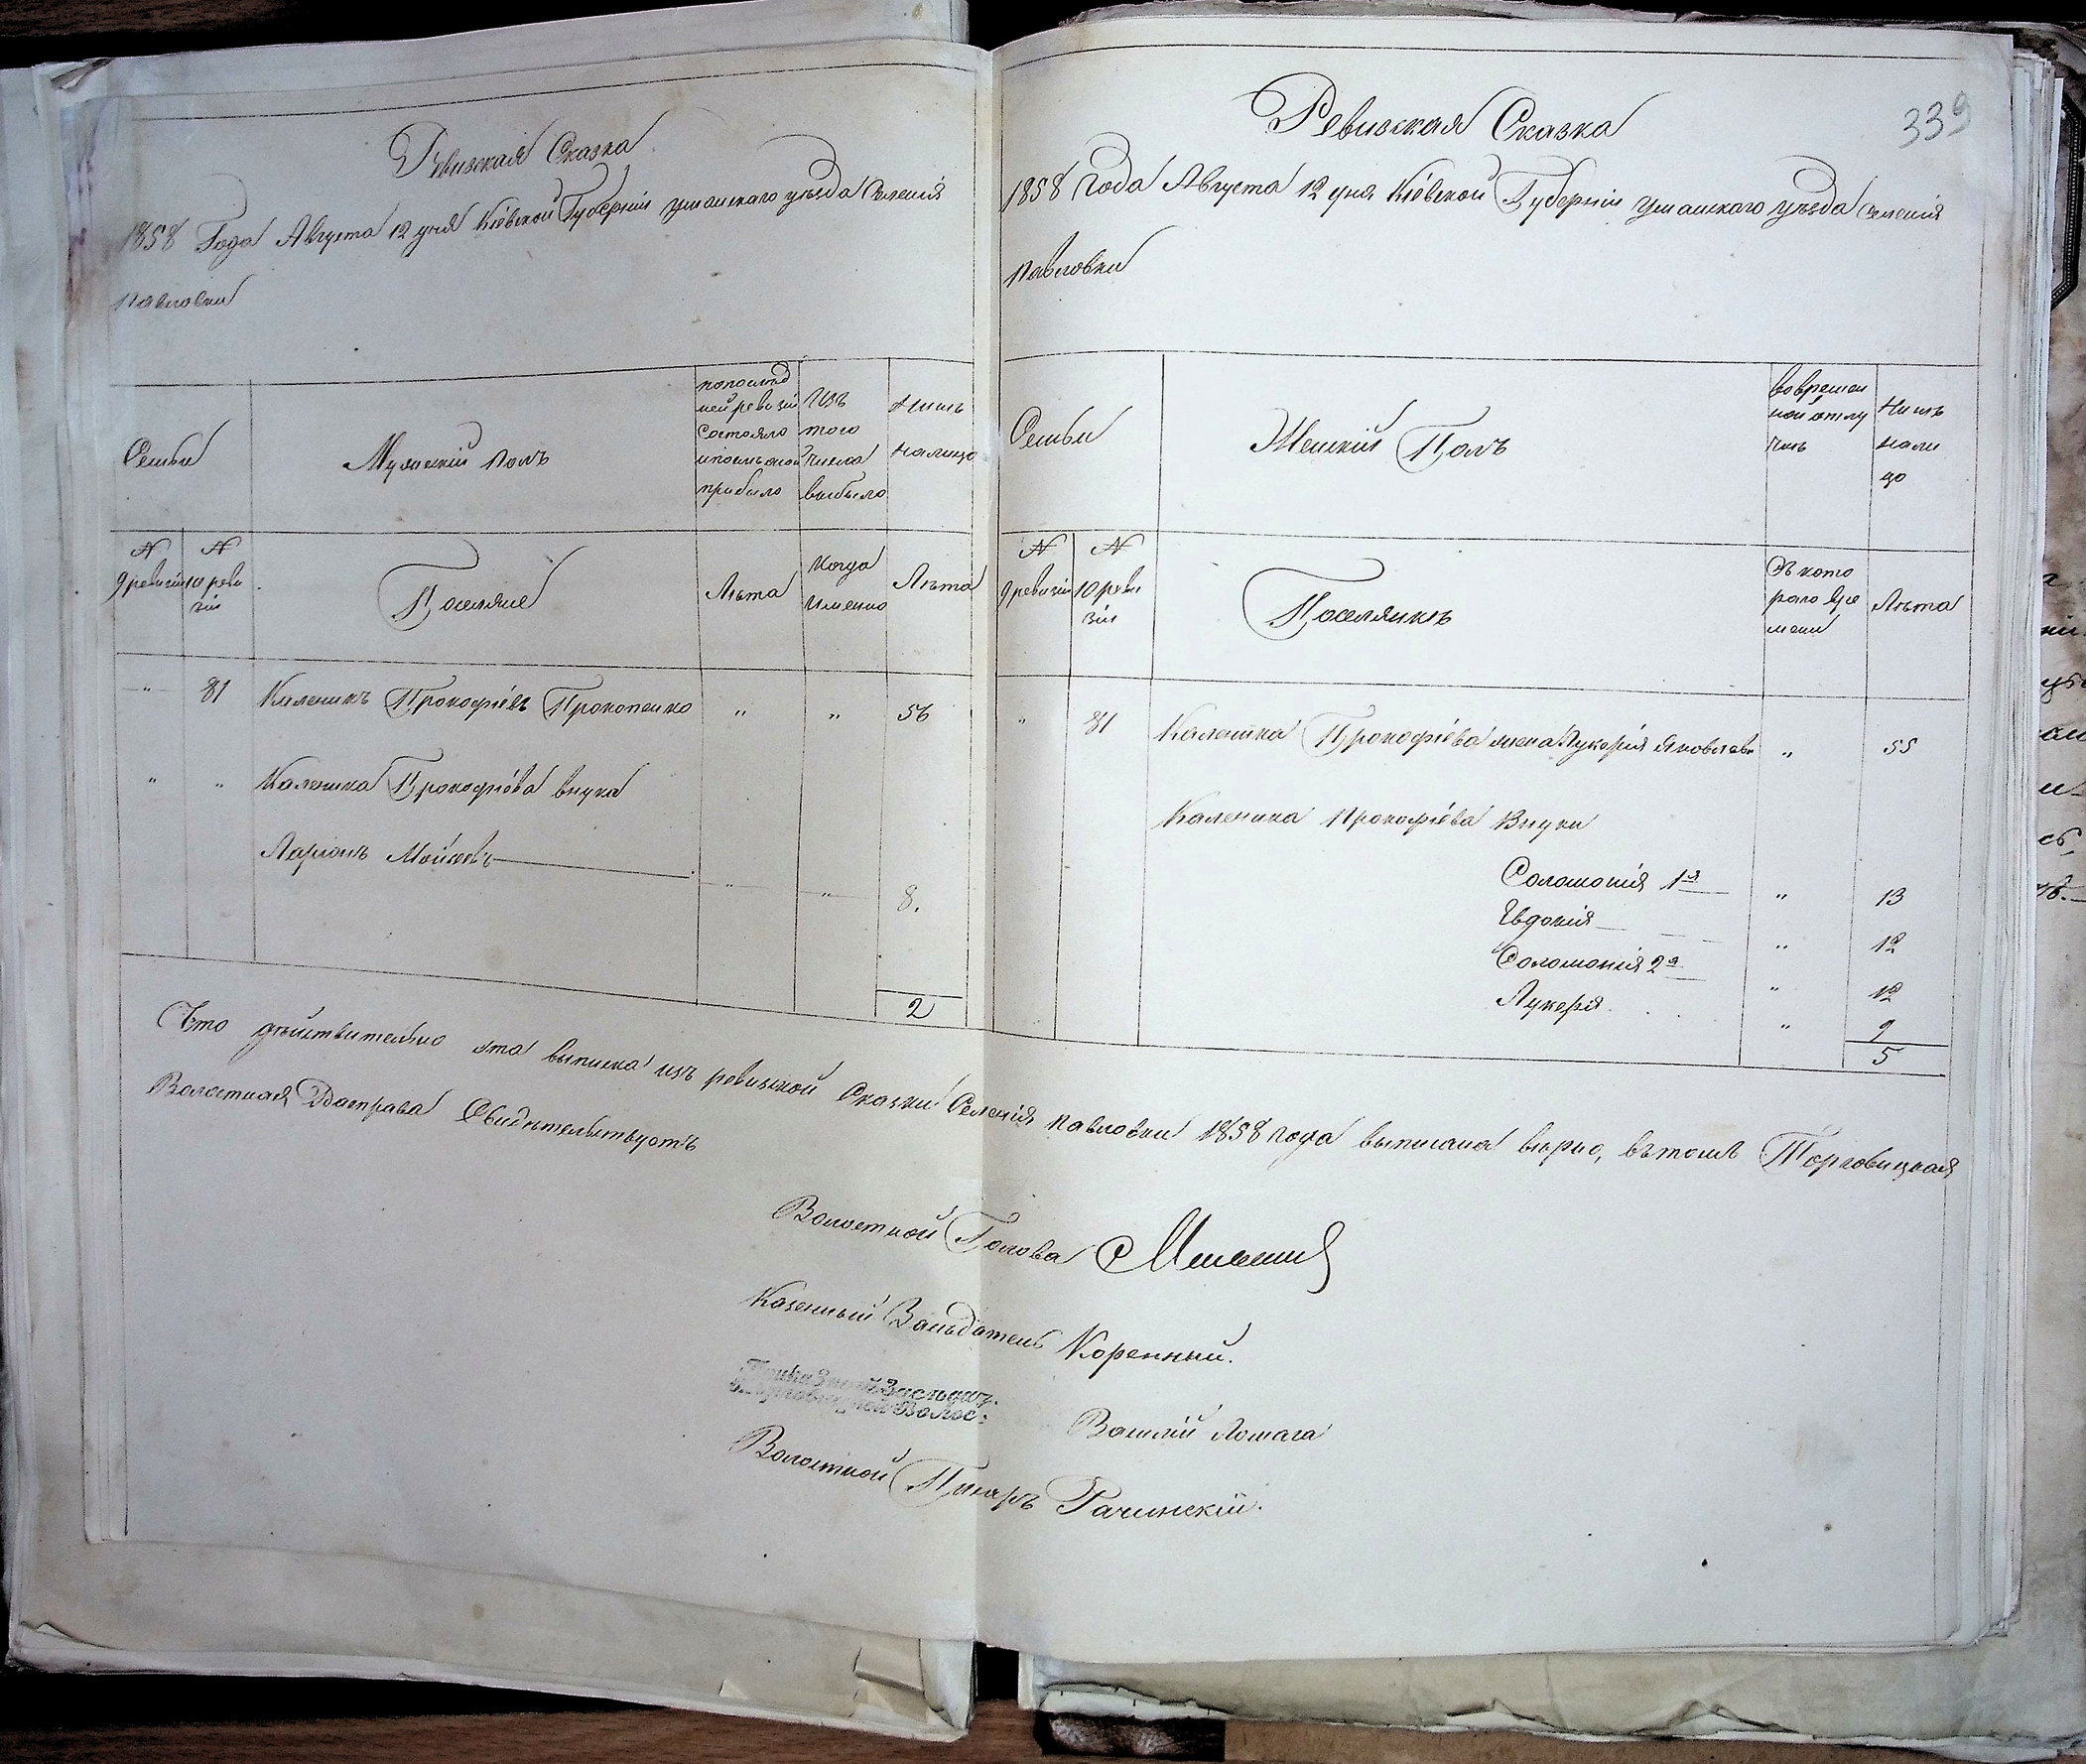 Ревизская Сказка
1858 Года Августа 12 дня Кіевской Губерніи Уманскаго уѣзда Селенія
Павловки
Семьи
Мужескій Полъ
по послѣд
ней ревизіи
состояло
и послѣ оной
прибыло
Изъ
того
числа
выбыло
Нынѣ
налицо
N
9 ревизіи
N
10 реви
зіи
Поселяне
Лѣта
Когда
Именно
Лѣта
" 81 Каленикъ Прокофіевъ Прокопенко " " 56
" " Каленика Прокофіева внука
Ларіонъ Мойсѣевъ " " 8.
2
339
Ревизская Сказка
1858 Года Августа 12 дня Кіевской Губерніи Уманскаго уѣзда Селенія
Павловки
Семьи
Женскій Полъ
во времен
ной отлу
чкѣ
Нынѣ
нали
цо
N
9 ревизіи
N
10 реви
зіи
Поселянкъ
Съ кото
раго вре
мени
Лѣта
" 81 Каленика Прокофіева жена Лукерія Яковлева " 55
Каленика Прокофіева Внуки
Соломонія 1я " 13
Евдокія " 12
Соломонія 2я " 12
Лукерія " 9
5
Что дѣйствительно эта выписка изъ ревизской Сказки Селенія Павловки 1858 года выписана вѣрно, въ томъ Торговицкая
Волостная Расправа Свидѣтельствуетъ
Волостной Голова
Казенный Засѣдатель Коренный.
Засѣдат.
Волос:
Василій Ломага
Волостной Писарь Рачинскій.